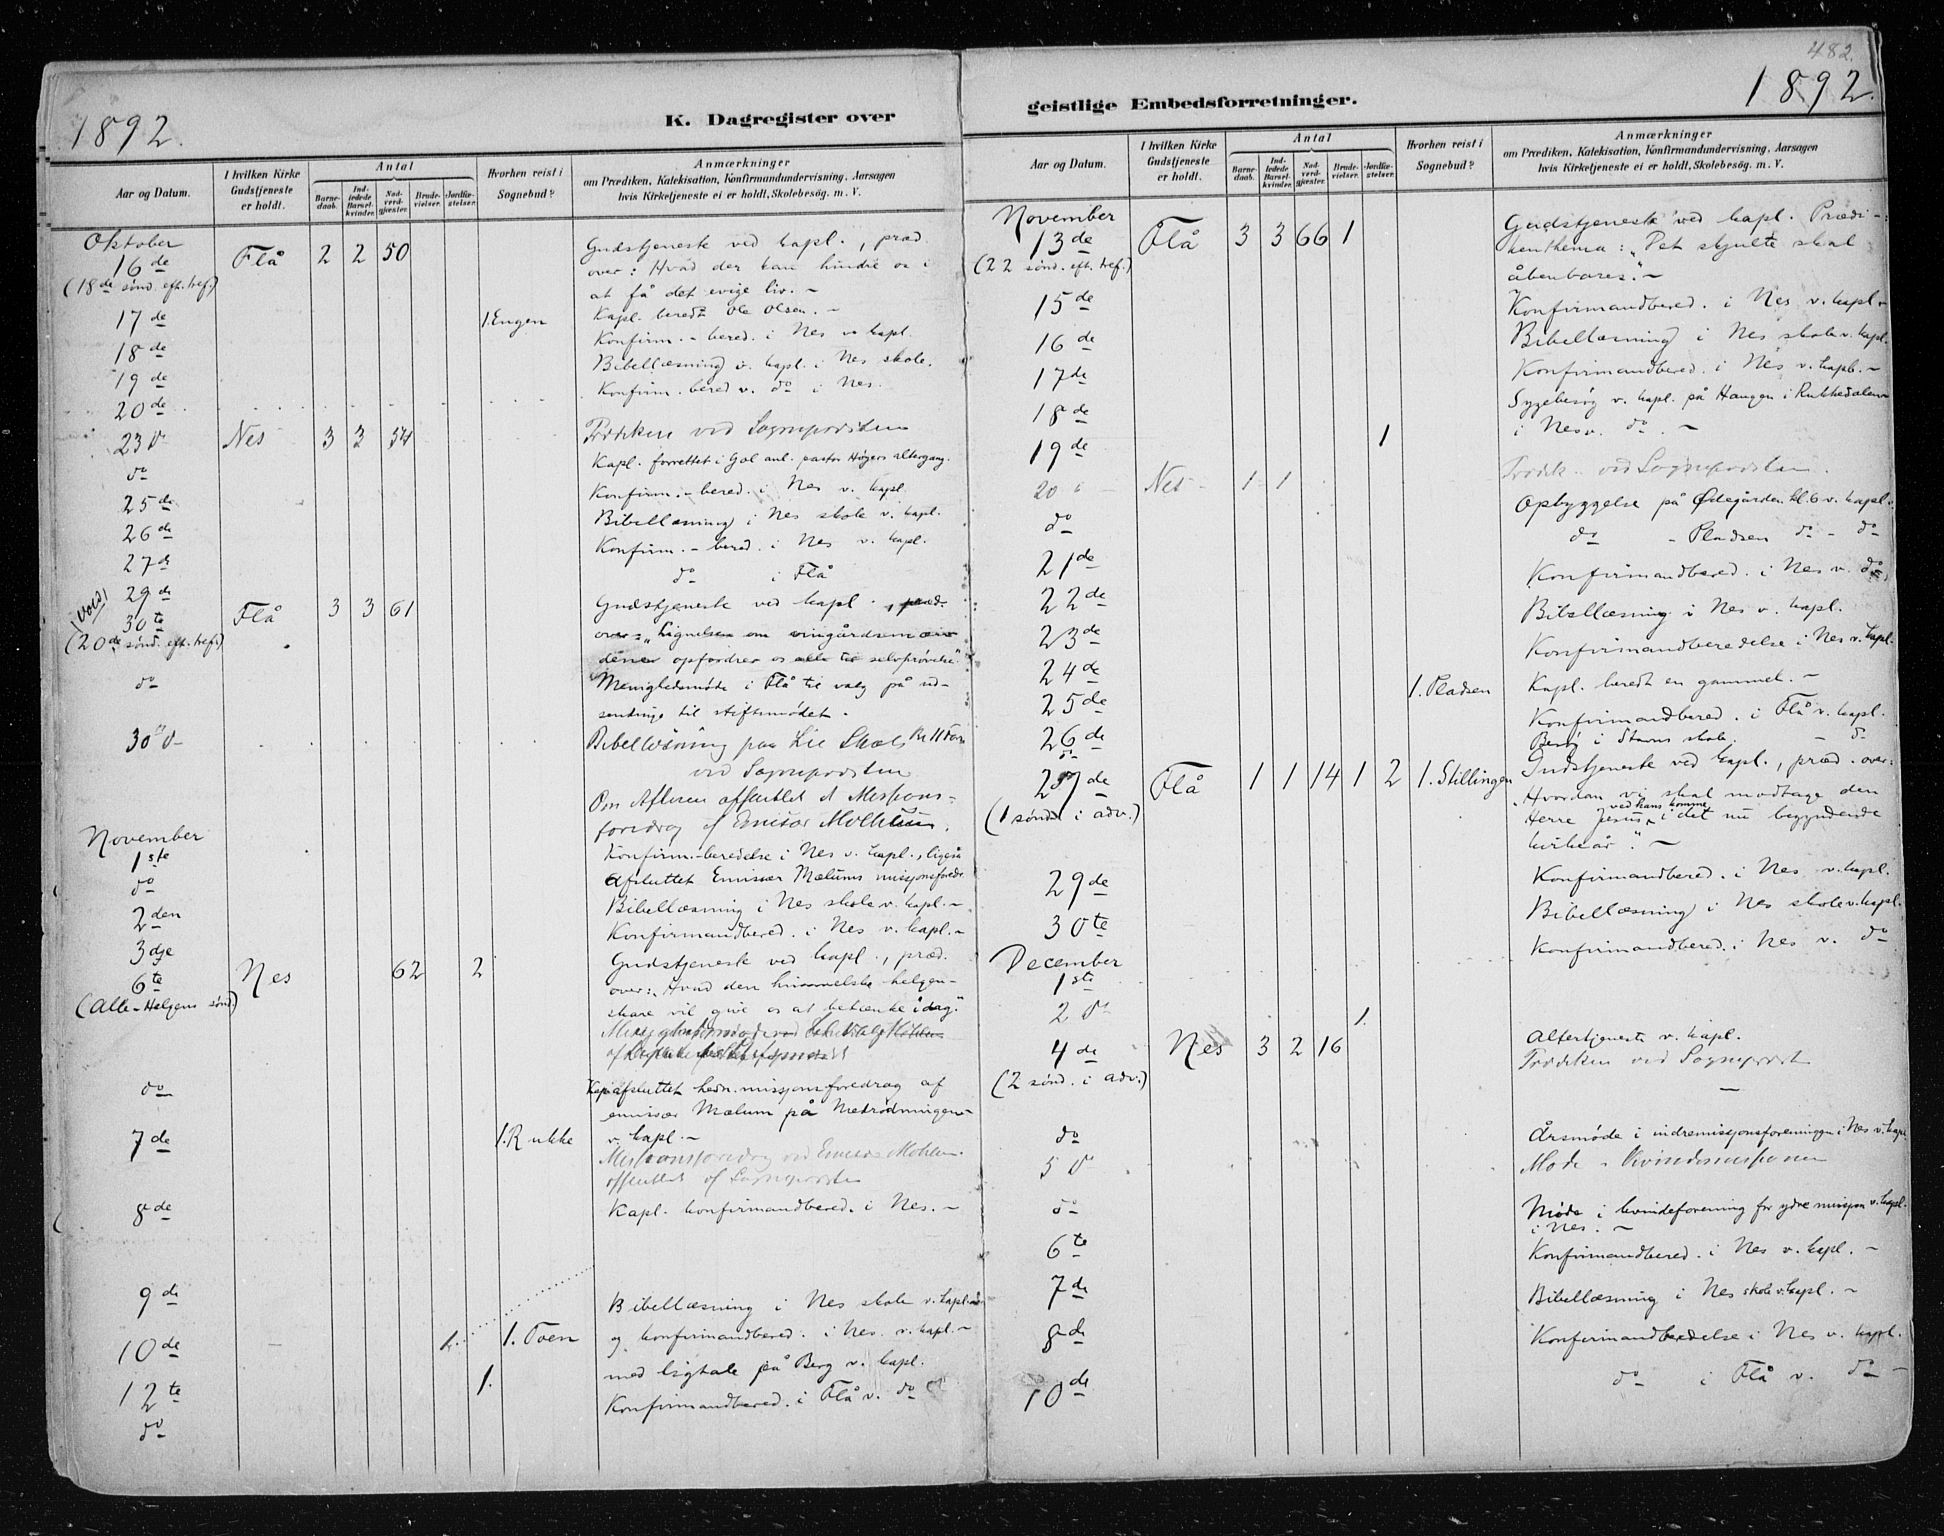 482.
1892.
K. Dagregister over
geistlige Embedsforretninger.
1892.
Aar og Datum.
I hvilken Kirke Gudstjeneste er holdt.
Antal
Barnedaab.
Indledede Barselkvinder.
Nadverdgjæster.
Brudevielser.
Jordfæstelser.
Hvorhen reist i Sognebud?
Anmærkninger
om Prædiken, Katekisation, Konfirmandundervisning, Aarsagen
hvis Kirketjeneste ei er holdt, Skolebesøg. m. V.
Oktober
16de Flå 2 2 50 Gudstjeneste ved kapl., præd.
(18de sønd. eft. tref.) over: Hvad der kan hindre os i
at få det evige liv. -
17de 1. Engen Kapl. beredt Ole Olsen. -
18de Konfirm.-bered. i Nes v. kapl.
19de Bibellæsning v. kapl. i Nes skole.
20de Konfirm.-bered v. do i Nes.
23 Nes 3 3 54 ved Sognepresten
do Kapl. forrettet i Gol anl. pastor Høyers altergang.
25de Konfirm.-bered. i Nes v. kapl.
26de Bibellæsning i Nes skole v. kapl.
27de Konfirm.-bered. i Nes v. kapl.
29de do i Flå
30te Flå 3 3 61 Gudstjeneste ved kapl., præd.
(20de sønd. eft. tref.) over: "Lignelsen om vingårdsmæn-
dene opfordrer os alle til selvprøvelse".
do Menighedsmøde i Flå til valg på ud-
sendinge til stiftsmødet.
30 Bibellæsning paa Lie Skole
ved Sognepresten
Om Aftenen afsluttet Missions-
foredrag af Emisær
November
1ste Konfirm.-beredelse i Nes v. kapl., ligeså
do Afsluttet Emissær Mælums missjonsforedr.
2den Bibellæsning i Nes skole v. kapl. -
3dje Konfirmandbered. i Nes v. kapl. -
6te Nes 62 2 Gudstjeneste ved kapl., præd.
(Alle-Helgens sønd.) over: "Hvad den himmelske helgen-
skare vil give os at betænke idag."
do Kapl. afsluttet hedn. missjonsforedrag af
emissær Mælum på
7de 1. Rukke v. kapl. -
Missionsforedrag ved Emissær
afsluttet af Sognepresten
8de Kapl. konfirmandbered. i Nes. -
9de Bibellæsning i Nes skole v. kapl.
10de 1. 1. Toen og konfirmandbered. i Nes. v. kapl. -
12te 1. med ligtale på Berg v. kapl.
do Konfirmandbered. i Flå v. do
Aar og Datum.
I hvilken Kirke Gudstjeneste er holdt.
Antal
Barnedaab.
Indledede Barselkvinder.
Nadverdgjæster.
Brudevielser.
Jordfæstelser.
Hvorhen reist i Sognebud?
Anmærkninger
om Prædiken, Katekisation, Konfirmandundervisning, Aarsagen
hvis Kirketjeneste ei er holdt, Skolebesøg. m. V.
November
13de Flå 3 3 66 1 Gudstjeneste ved kapl. Prædi-
(22 sønd. eft. tref.) kenthema: "Det skjulte skal
åbenbares." -
15de Konfirmandbered. i Nes v. kapl -
16de Bibellæsning i Nes skole v. kapl.
17de Konfirmandbered. i Nes v. kapl. -
18de Sygebesøg v. kapl. på Haugen i Rukkedalen
19de 1 i Nes v. do. -
20 Nes 1 1 ved Sognepresten.
do Opbyggelse på Ødegården kl. 6 v. kapl.
21de do - Pladsen do - do
22de Konfirmandbered. i Nes v. do
23de Bibellæsning i Nes v. kapl.
24de Konfirmandberedelse i Nes v. kapl.
25de 1. Pladsen Kapl. beredt en gammel. -
26de Konfirmandbered. i Flå v. kapl.
do Besøg i Stavns skole. - do
27de Flå 1 1 14 1 2 1. Stillingen Gudstjeneste ved kapl., præd. over:
(1 sønd i adv.) Hvordan vi skal modtage den
Herre Jesus ved hans komme i det nu begyndende
kirkeår". -
29de Konfirmandbered. i Nes v. kapl.
30te Bibellæsning i Nes skole v. kapl.
December
1ste Konfirmandbered. i Nes v. do
2 1.
4de Nes 3 2 16 Altertjeneste v. kapl.
(2 sønd. i adv.) ved Sognepresten
do Årsmøde i indremissjonsforeningen i Nes v. kapl
5 Møde i Kvindemissionen
do Møde i kvindeforening for ydre missjon v. kapl.
i Nes. -
6te Konfirmandbered. i Nes v. kapl. -
7de Bibellæsning i Nes skole v. kapl. -
8de Konfirmandberedelse i Nes v. kapl.
10de do i Flå v. do -